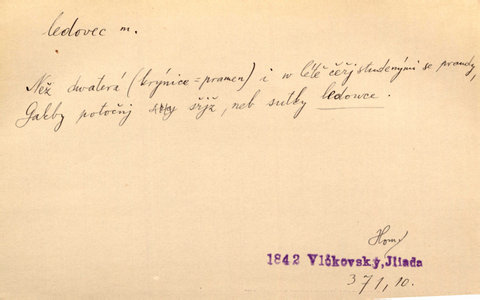 ledovec m.
Než dwaterá (krýnice = pramen) i w létě čěřj studenými se praudy,
Gakby potočnj sřjž, neb sutky ledowce.
Hom.
1842 Vlčkovský, Jliada
371, 10.